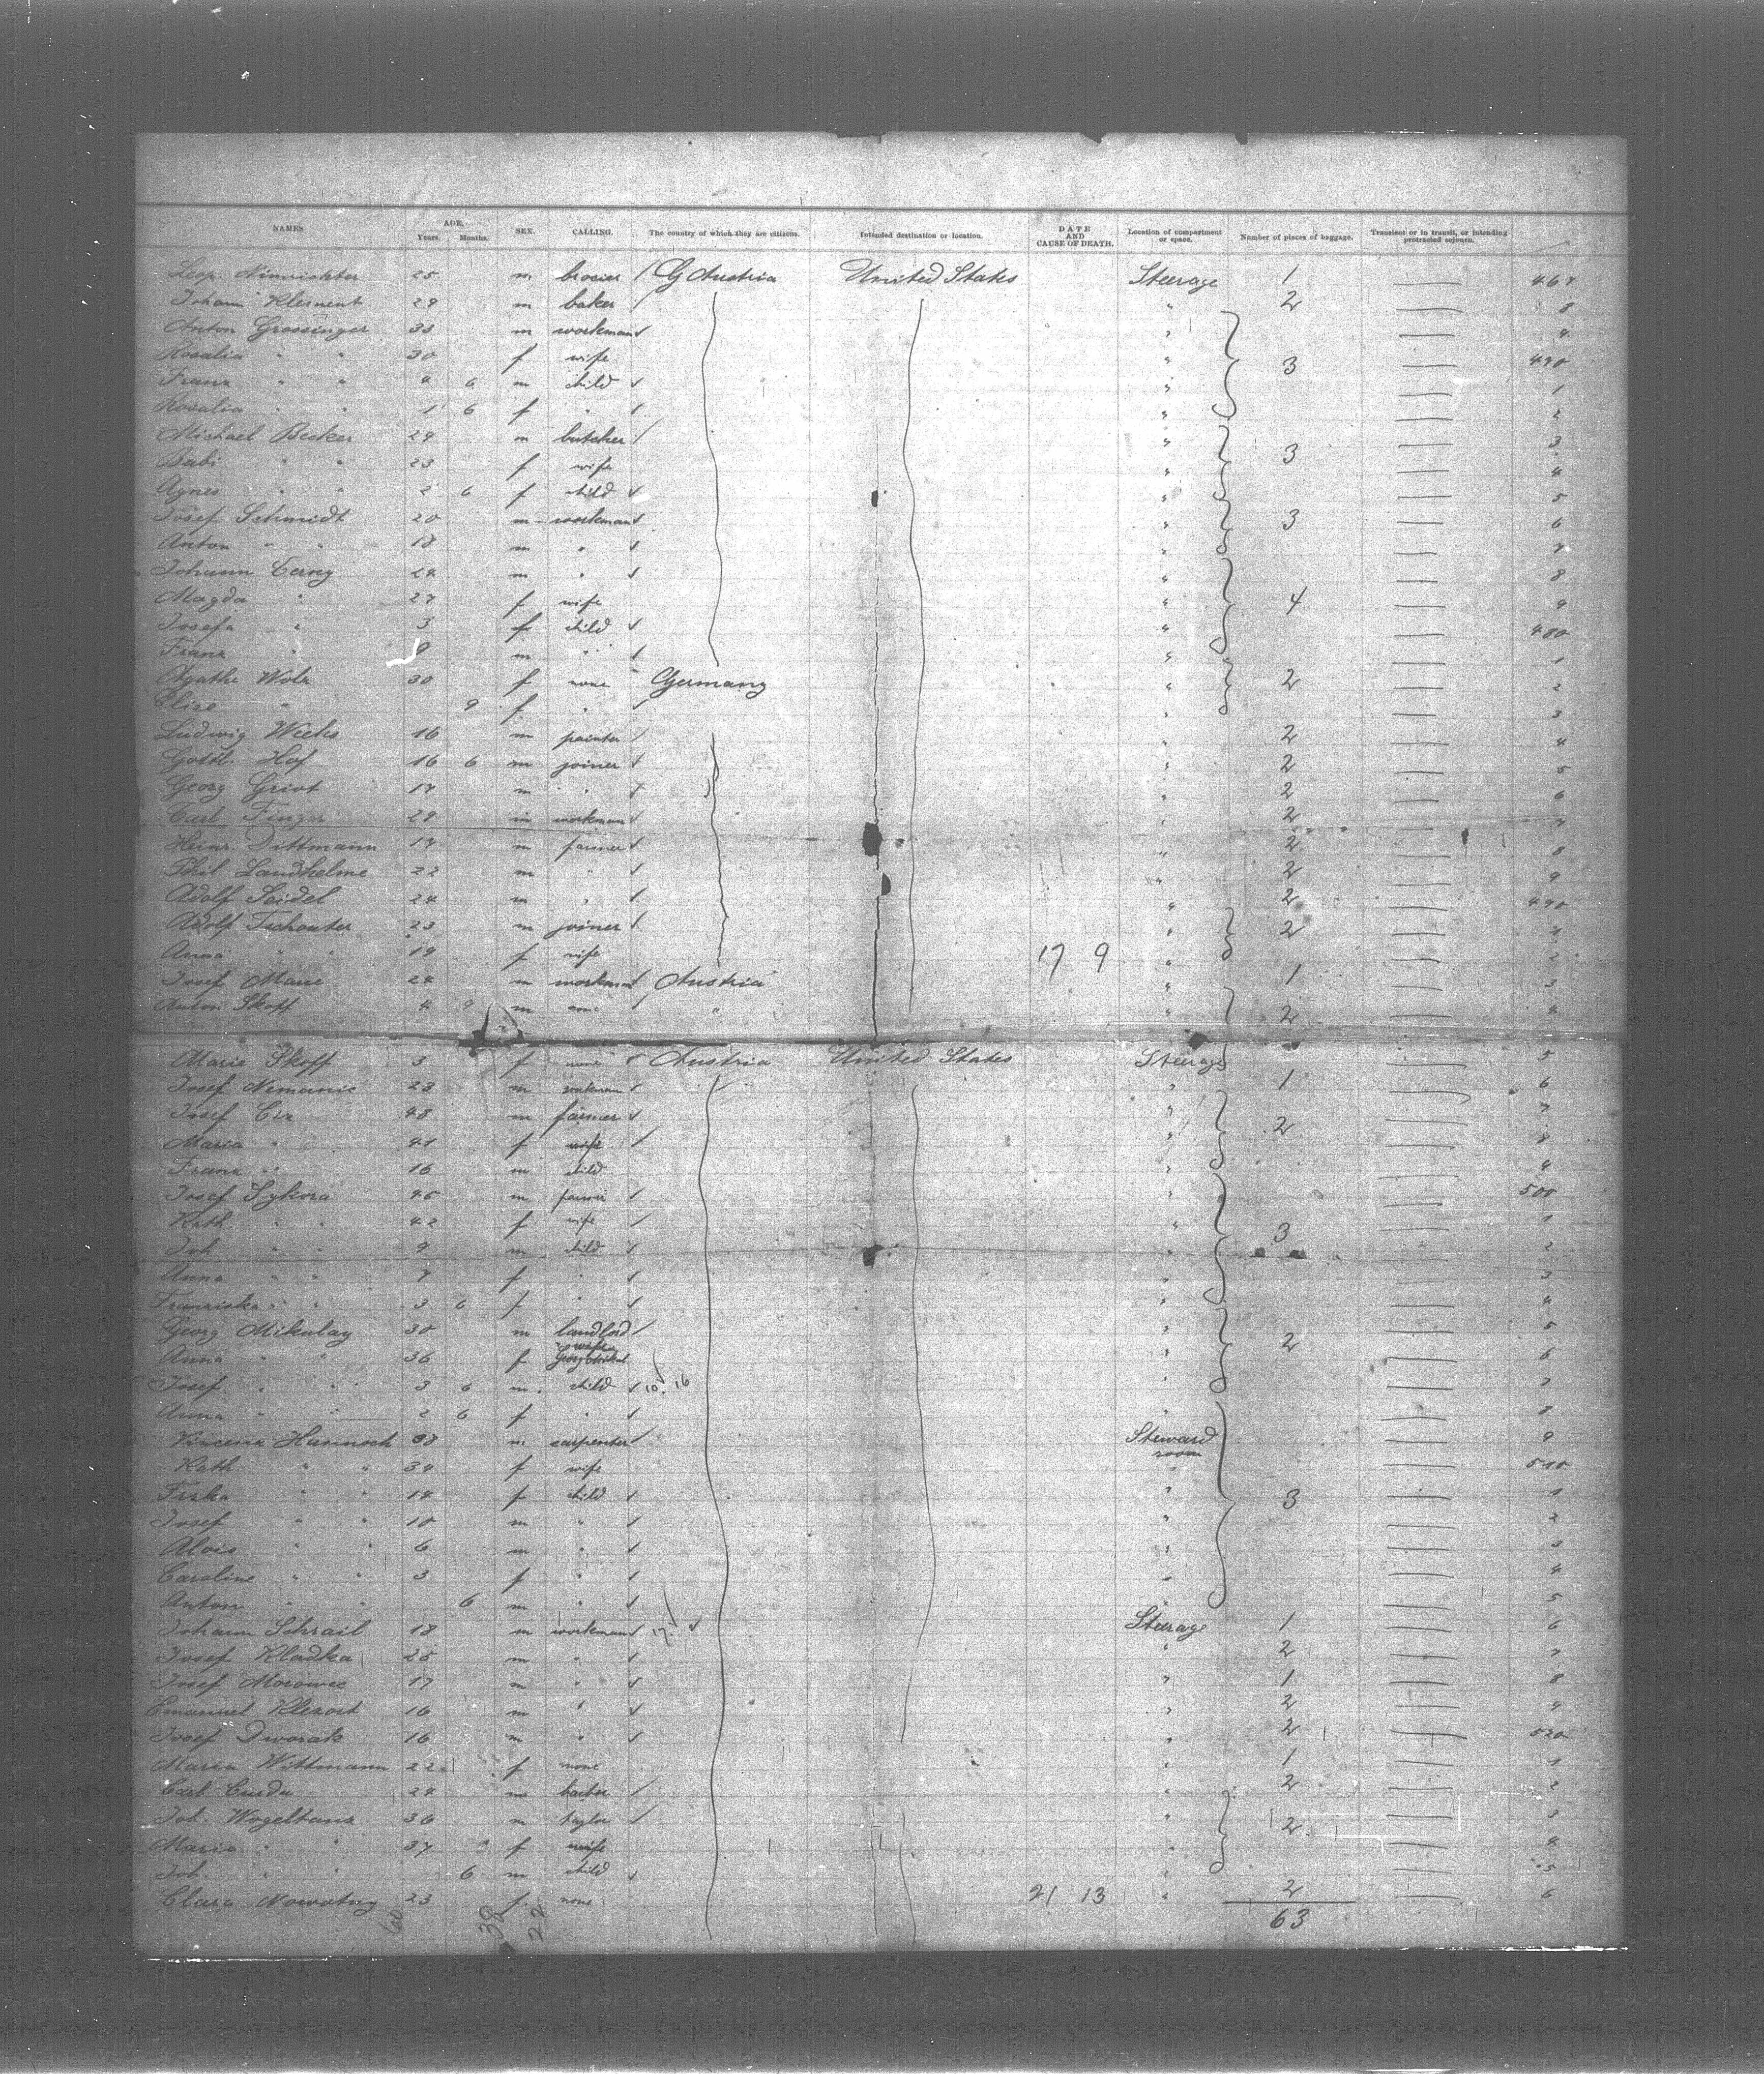 NAMES AGE. Years. Months. SEX. CALLING. The country of which they are citizens. Intended destination or location. DATE AND CAUSE OF DEATH. Location of compartment or space. Number of pieces of baggage. Transient or in transit, or intending protracted sojourn.
Leop. 25 m / Austria United States Steerage 1 —
Johann Klement 29 m baker / " 2 — 8
Anton Grossinger 33 m workman " —
Rosalia " " 30 f wife " 3 —
Franz " " 4 6 m child " — 1
Rosalia " " 1 6 f " " — 2
Michael Becker 29 m butcher / " — 3
Babi " " 23 f wife " 3 — 4
Agnes " " 2 6 f child " — 5
Josef Schmidt 20 m workman " 3 — 6
Anton " " 18 m " " — 7
Johann Cerny 24 m " " — 8
Magda " 27 f wife " 4 — 9
Josefa " 3 f child " — 480
Franz " 9 m " " — 1
Agathe 30 f none Germany " 2 — 2
Elise " 9 f " " — 3
Ludwig 16 m painter / " 2 — 4
Gottl. Hof 16 6 m joiner " 2 — 5
Georg Griot 17 m " " 2 — 6
Carl Finger 29 m workman " 2 — 7
Heinr. Dittmann 17 m farmer " 2 — 8
Phil Landhelme 22 m " " 2 — 9
Adolf Seidel 24 m " " 2 — 490
Adolf 23 m joiner " 2 — 1
Anna " " 19 f wife 17 9 " — 2
Josef 24 m workman Austria " 1 — 3
Anton Skoff 4 9 m " " 2 4
Marie Skoff 3 f none Austria United States Steerage 5
Josef Nemanic 23 m workman " 1 — 6
Josef Cix 48 m farmer " 2 — 7
Maria " 41 f wife " — 8
Franz " 16 m child " — 9
Josef Sykora 45 m farmer " — 500
Kath. " " 42 f wife " — 1
Joh " " 9 m child " 3 — 2
Anna " " 7 f " " — 3
Franziska " " 3 6 f " " — 4
Georg Mikulay 30 m landlord / " — 5
Anna " 36 f wife " 2 — 6
Josef " " 3 6 m child 10. 16 " — 7
Anna " " 2 6 f " " — 8
Vincenz Hunnsch 38 m carpenter Steward room — 9
Kath. " " 34 f wife " — 510
" " 14 f child " 3 — 1
Josef " " 10 m " " — 2
Alois " " 6 m " " — 3
Caroline " " 3 f " " — 4
Anton " " 6 m " " — 5
Johann Schrail 18 m workman Steerage 1 — 6
Josef Kladka 25 m " " 2 — 7
Josef 17 m " " 1 — 8
Emanuel 16 m " " 2 — 9
Josef Dworak 16 m " " 2 — 520
Maria Wittmann 22 f none " 1 — 1
Carl Curda 24 m barber / " 2 — 2
Joh. Wogeltanz 36 m taylor / " 2 — 3
Maria " " 37 f wife " — 4
Joh. " " 6 m child " — 5
Clara Nowotny 23 f none 21 13 " 2 — 6
60 38 22 63